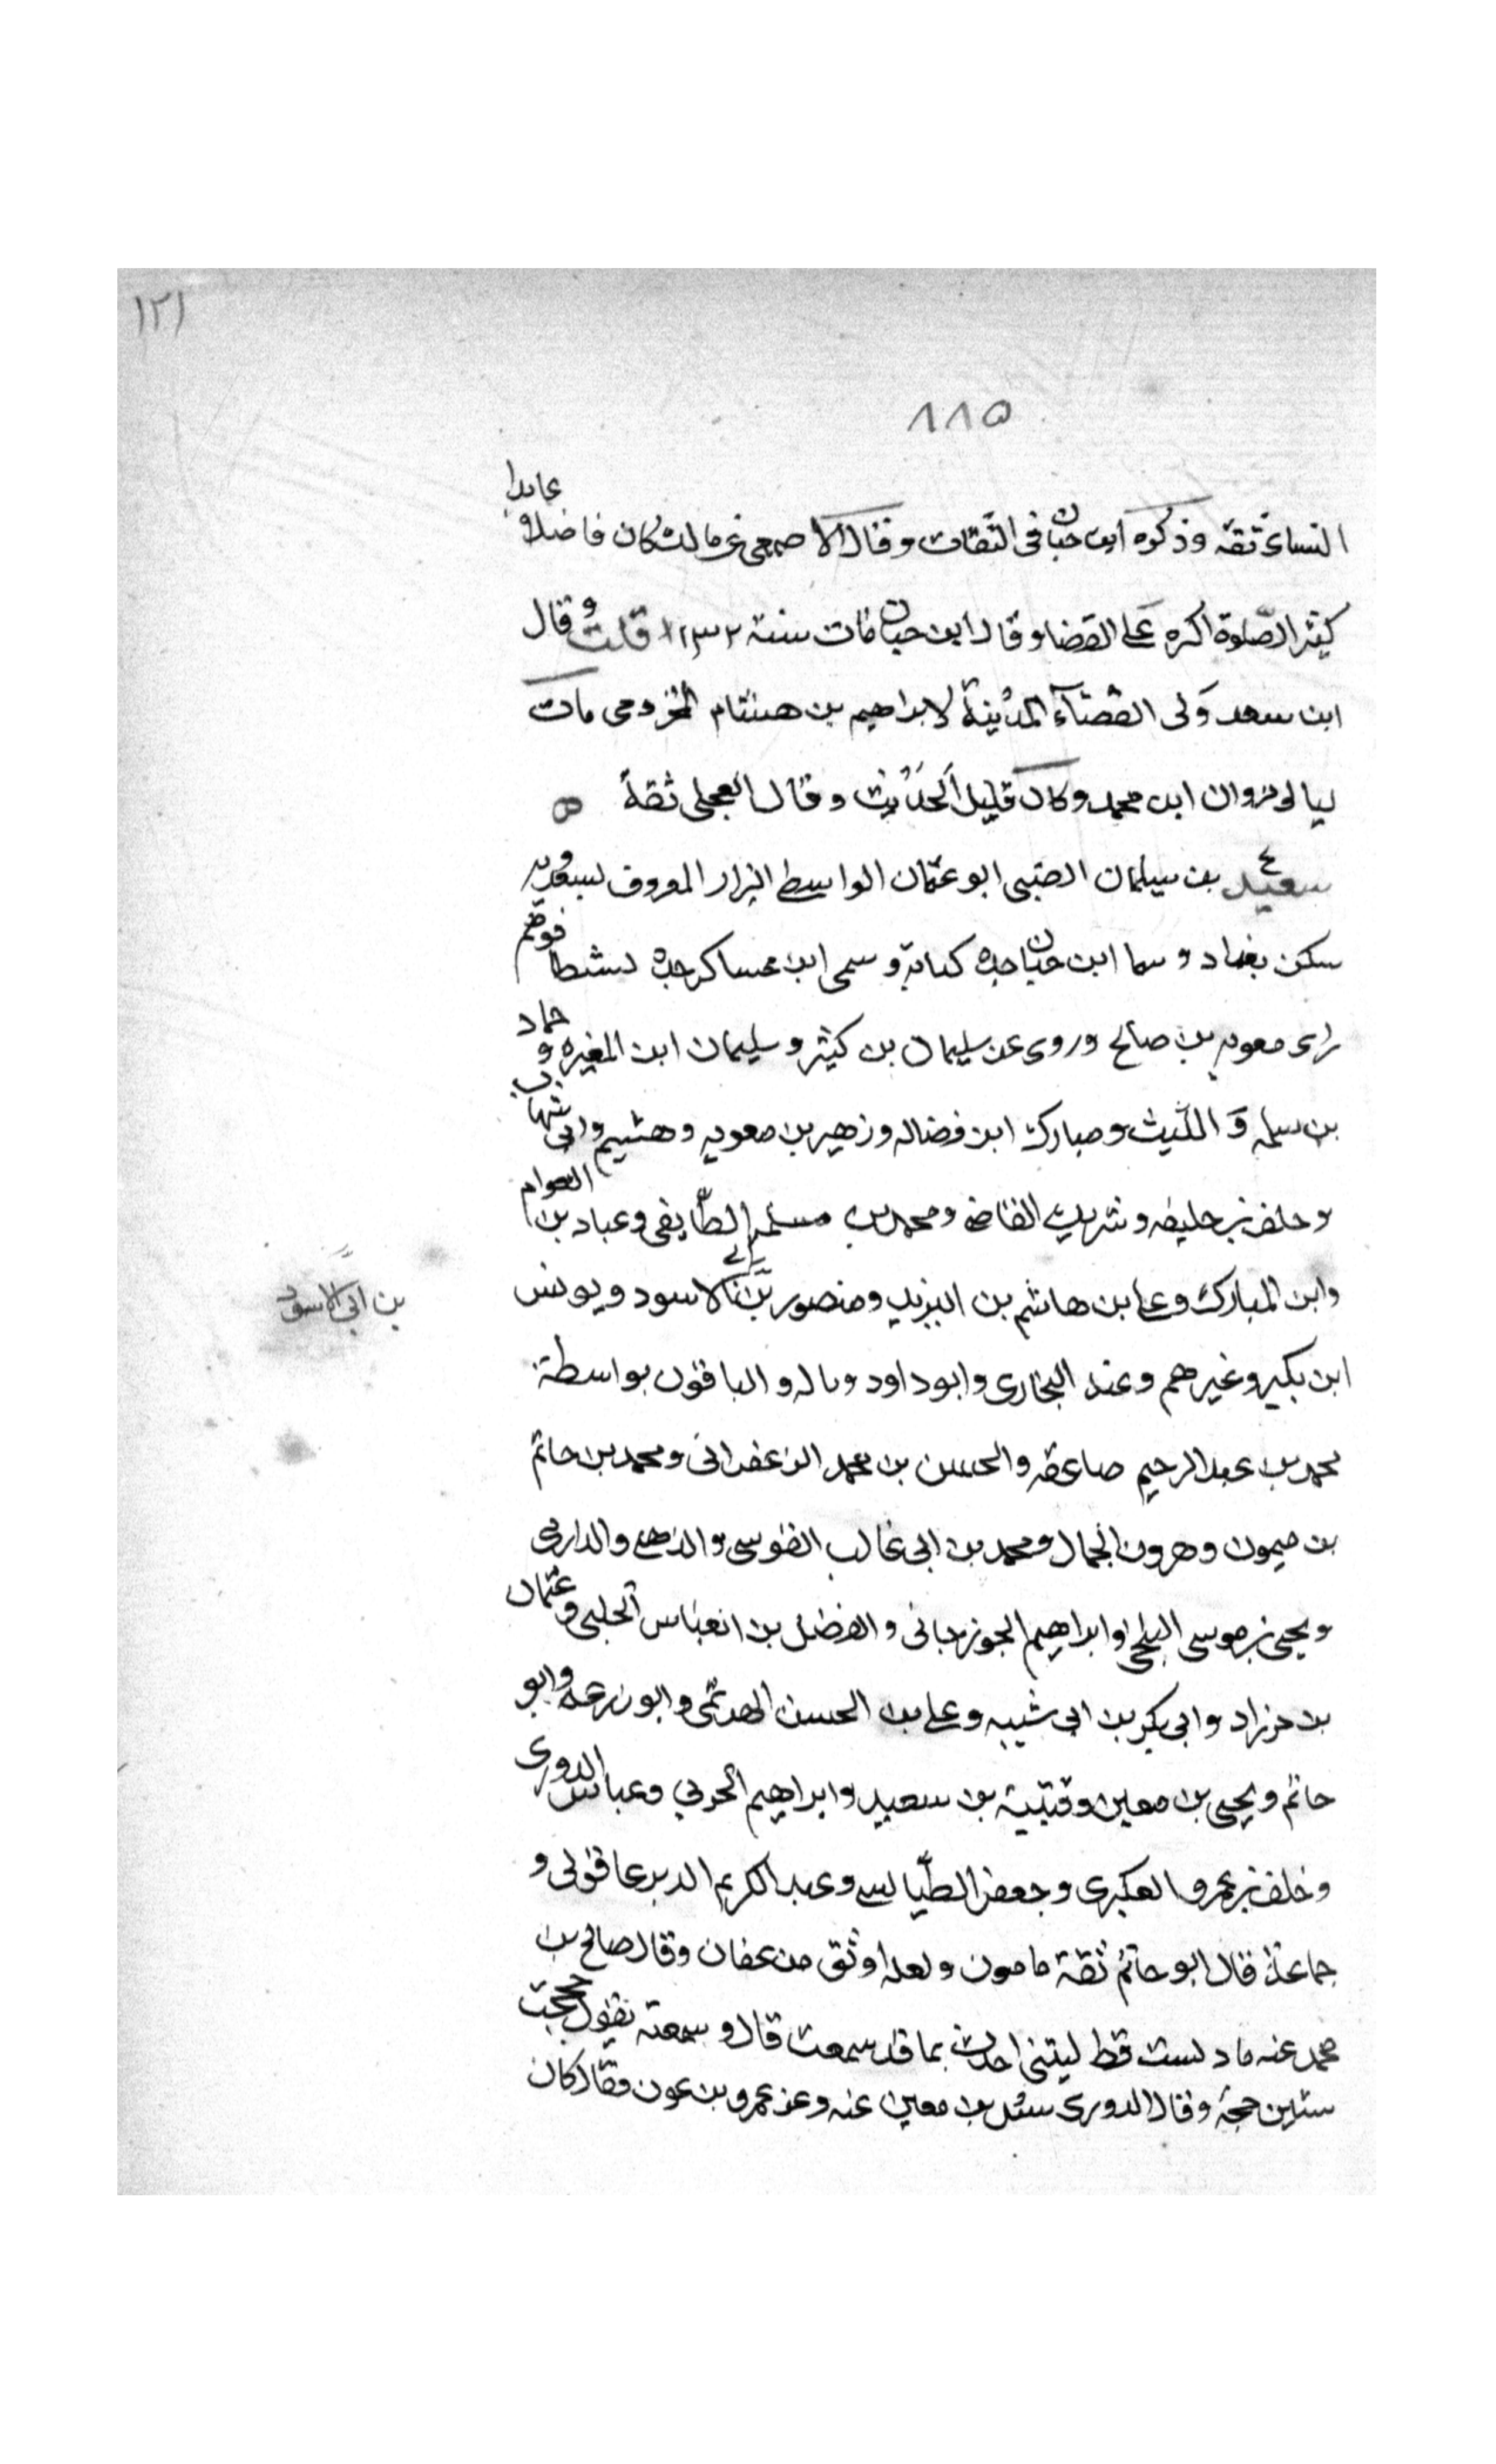 ١٢١
٨٨٥
النسائى ثقة وذكره ابن حبان فى الثقات وقال الاصمعى عن مالك كان فاضلا عابدا
كثير الصلوة اكره على القضا وقال ابن حبان مات سنة ١٣٢ قلت وقال
ابن سعد ولى القضآء المدينة لابراهيم بن هشام المخزومى مات
ليالى مروان ابن محمد وكان قليل الحديث وقال العجلى ثقة ه
سعيد بن سيلمان الضبى ابو عثمان الواسطى البزار المعروف بسعدويه
سكن بغداد وسما ابن حبان جده كنانة وسمى ابن عساكر جده نشيطا فوهم
راى معويه بن صالح وروى عن سليمان بن كثير وسليمان ابن المغيره وحماد
بن سلمه و الليث ومبارك ابن فضاله وزهير بن معويه وهشيم وابى شهاب
وخلف بن خليفه وشريك القاضى ومحمد بن مسلم الطايفى وعباد بن العوام
وابن المبارك وعلى بن هاشم بن البريد ومنصور بن ابى الاسود ويونس
بن ابى الاسود
ابن بكير وغيرهم وعنه البخارى وابو داود وباله والباقون بواسطة
محمد بن عبد الرحيم صاعقه والحسن بن محمد الزعفرانى ومحمد بن حاتم
بن ميمون وهرون الجمال ومحمد بن ابى غالب القوسى والذهلى والدارمى
ويحيى بن موسى البلخى وابراهيم الجوزجانى والفضل بن العباس الحلبى وعثمان
بن خرزاد وابى بكر بن ابى شيبه وعلى بن الحسن الهرثمى وابو زرعه وابو
حاتم ويحيى بن معين وقتيبة بن سعيد وابراهيم الحربي وعباس الدورى
وخلف بن عمرو العكبرى وجعفر الطيالسى وعبد الكريم الديرعاقولى و
جماعة قال ابو حاتم ثقة مامون ولعله اوثق من عفان وقال صالح بن
محمد عنه ما دلست قط ليتنى احدث بما قد سمعت قال وسمعته يقول حججت
ستين حجة وقال الدورى سئل بن معين عنه وعن عمرو بن عون فقال كان